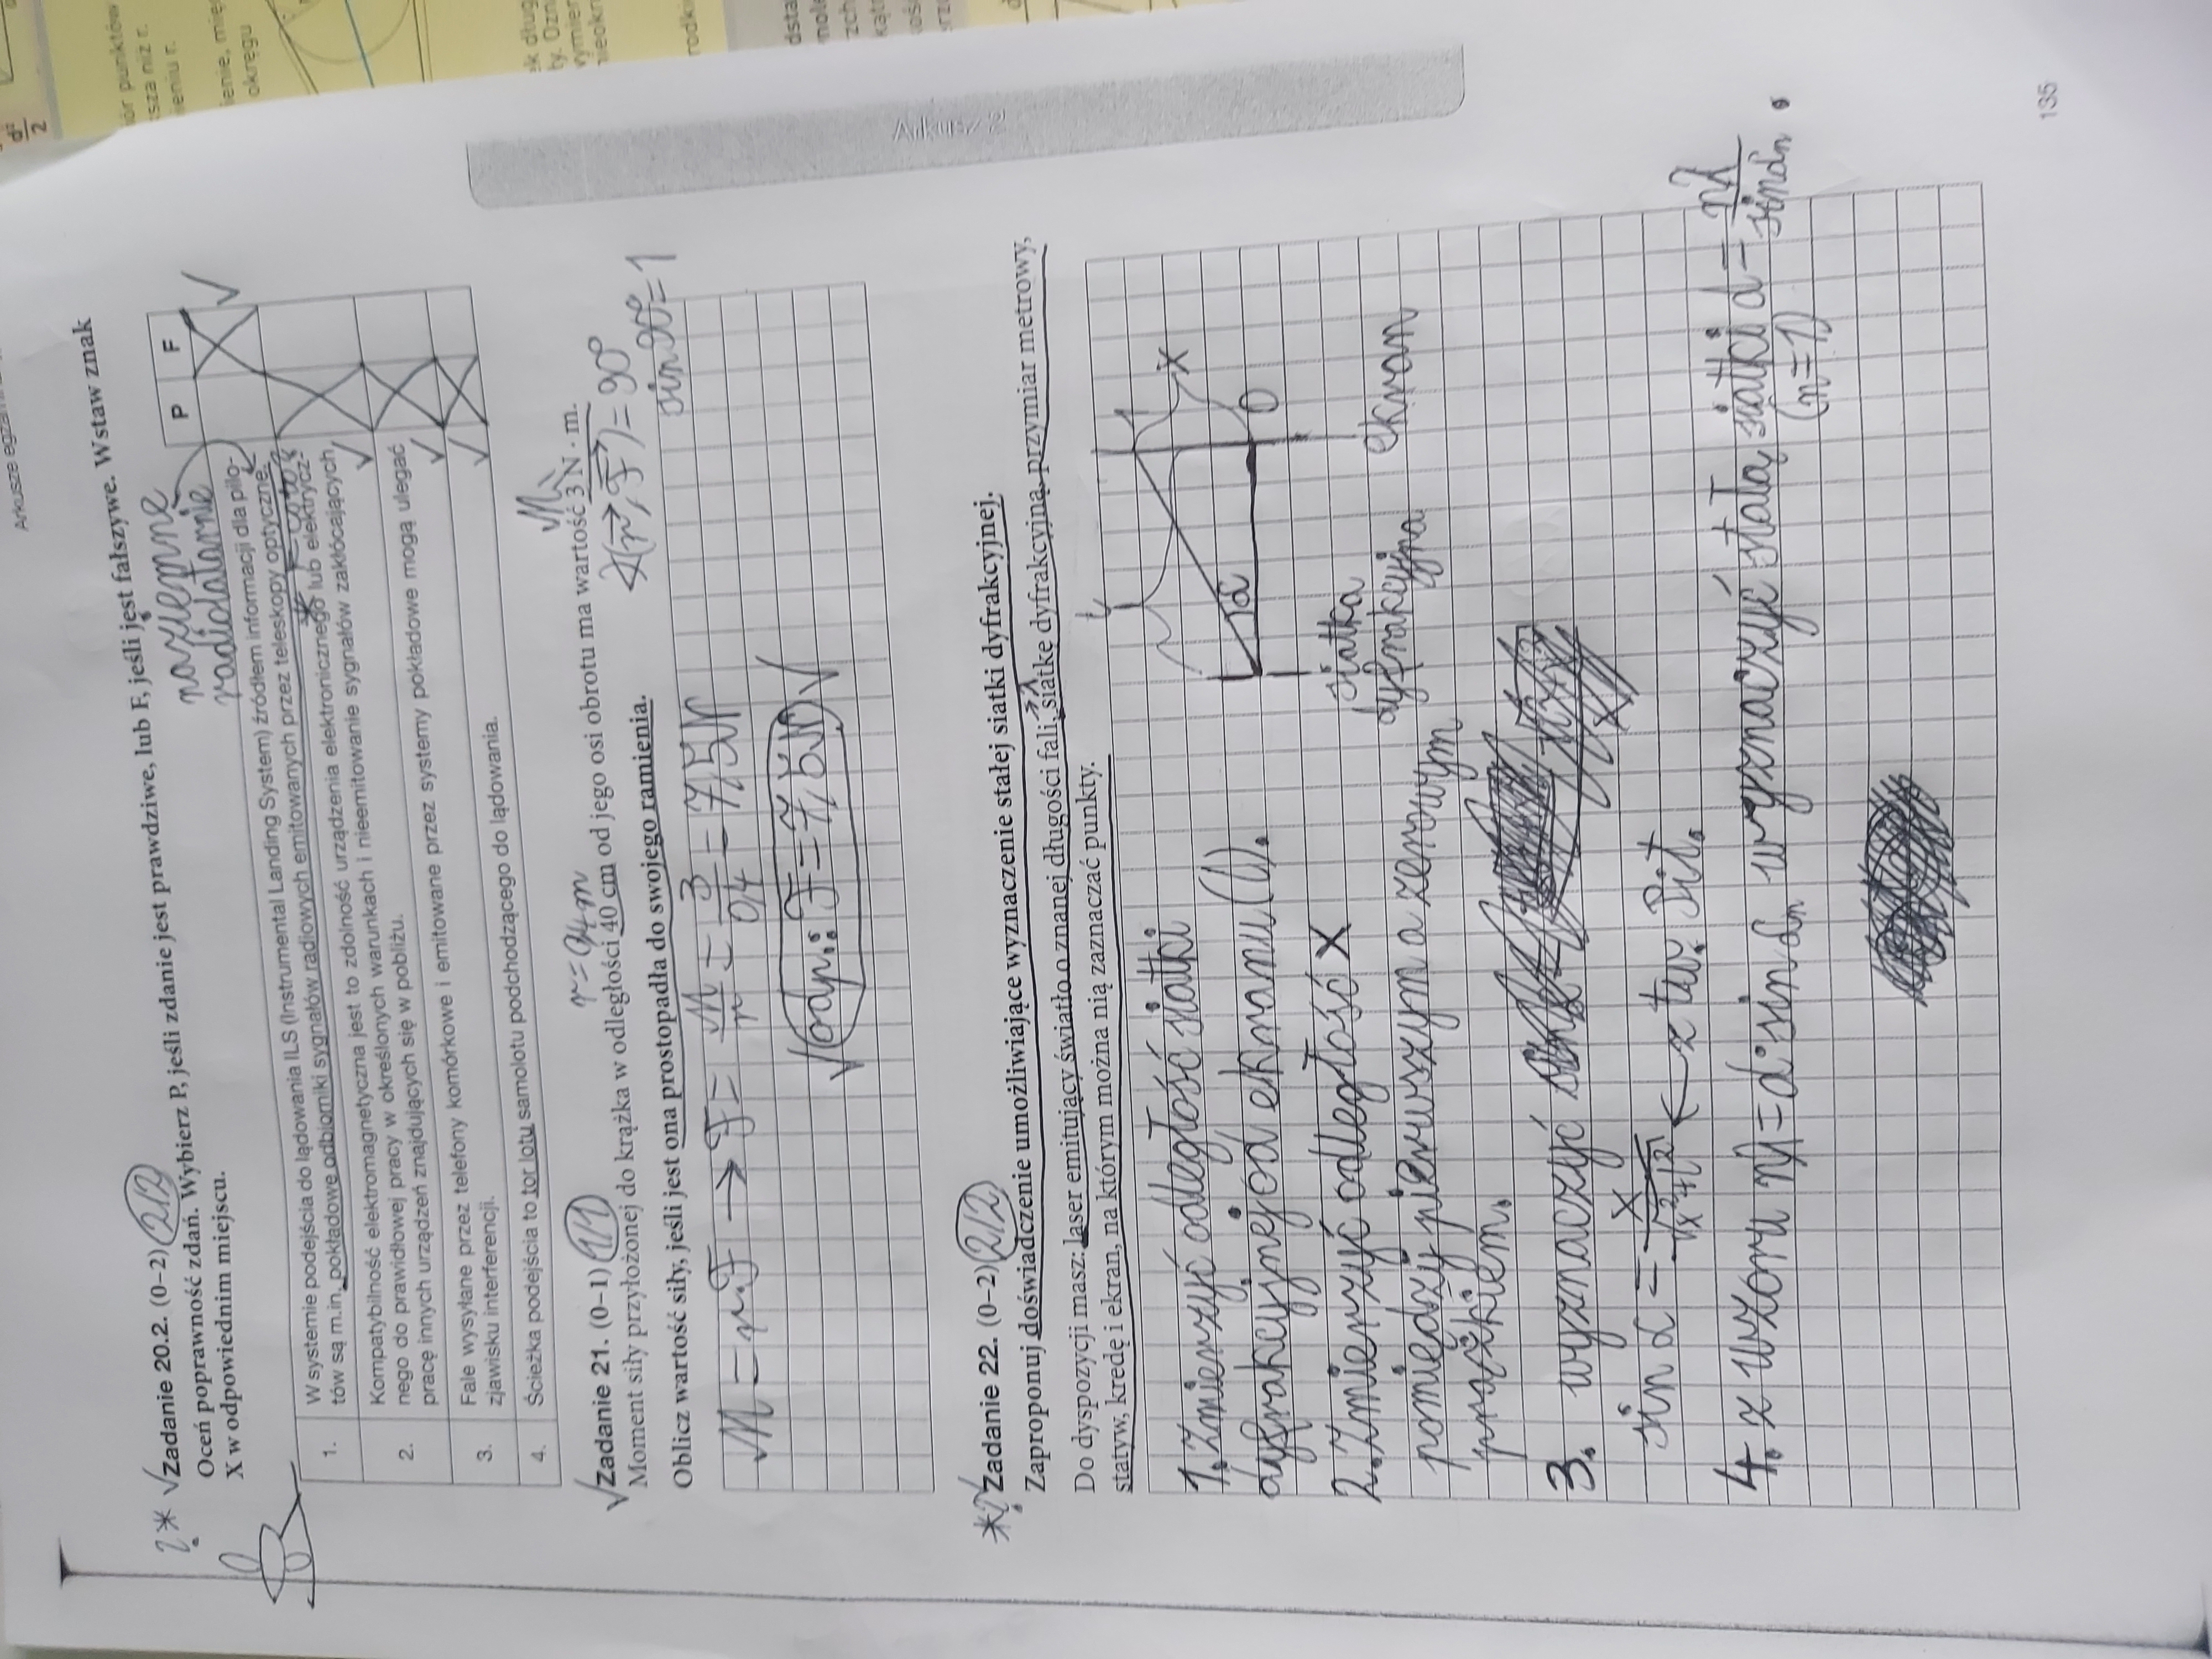 Arkusze
135
Arkusz 2
? * √ Zadanie 20.2. (0–2) 2/2
Oceń poprawność zdań. Wybierz P, jeśli zdanie jest prawdziwe, lub F, jeśli jest fałszywe. Wstaw znak
X w odpowiednim miejscu.
naziemne
radiolatarnie
P F
1. W systemie podejścia do lądowania ILS (Instrumental Landing System) źródłem informacji dla pilo-
tów są m.in. pokładowe odbiorniki sygnałów radiowych emitowanych przez teleskopy optyczne.
X √
co to?
2. Kompatybilność elektromagnetyczna jest to zdolność urządzenia elektronicznego lub elektrycz-
nego do prawidłowej pracy w określonych warunkach i nieemitowanie sygnałów zakłócających
pracę innych urządzeń znajdujących się w pobliżu.
X √
3. Fale wysyłane przez telefony komórkowe i emitowane przez systemy pokładowe mogą ulegać
zjawisku interferencji.
X √
4. Ścieżka podejścia to tor lotu samolotu podchodzącego do lądowania.
X √
√ Zadanie 21. (0–1) 1/1
r = 0,4 m
M
Moment siły przyłożonej do krążka w odległości 40 cm od jego osi obrotu ma wartość 3 N · m.
Oblicz wartość siły, jeśli jest ona prostopadła do swojego ramienia.
∢(r, F) = 90°
sin 90° = 1
M = r·F → F = M/r = 3/0,4 = 7,5N
√ odp.: F = 7,5N √
*? √ Zadanie 22. (0–2) 2/2
Zaproponuj doświadczenie umożliwiające wyznaczenie stałej siatki dyfrakcyjnej.
Do dyspozycji masz: laser emitujący światło o znanej długości fali, siatkę dyfrakcyjną, przymiar metrowy,
λ
statyw, kredę i ekran, na którym można nią zaznaczać punkty.
1. Zmierzyć odległość siatki
dyfrakcyjnej od ekranu (l).
2. Zmierzyć odległość x
pomiędzy pierwszym a zerowym
prążkiem.
l
1
x
α
0
siatka
dyfrakcyjna
ekran
3. wyznaczyć
sin α = x/√x²+l² ← z tw. Pit.
4. z wzoru nλ = d·sin αn wyznaczyć stałą siatki d = nλ/sin αn.
(n=1)